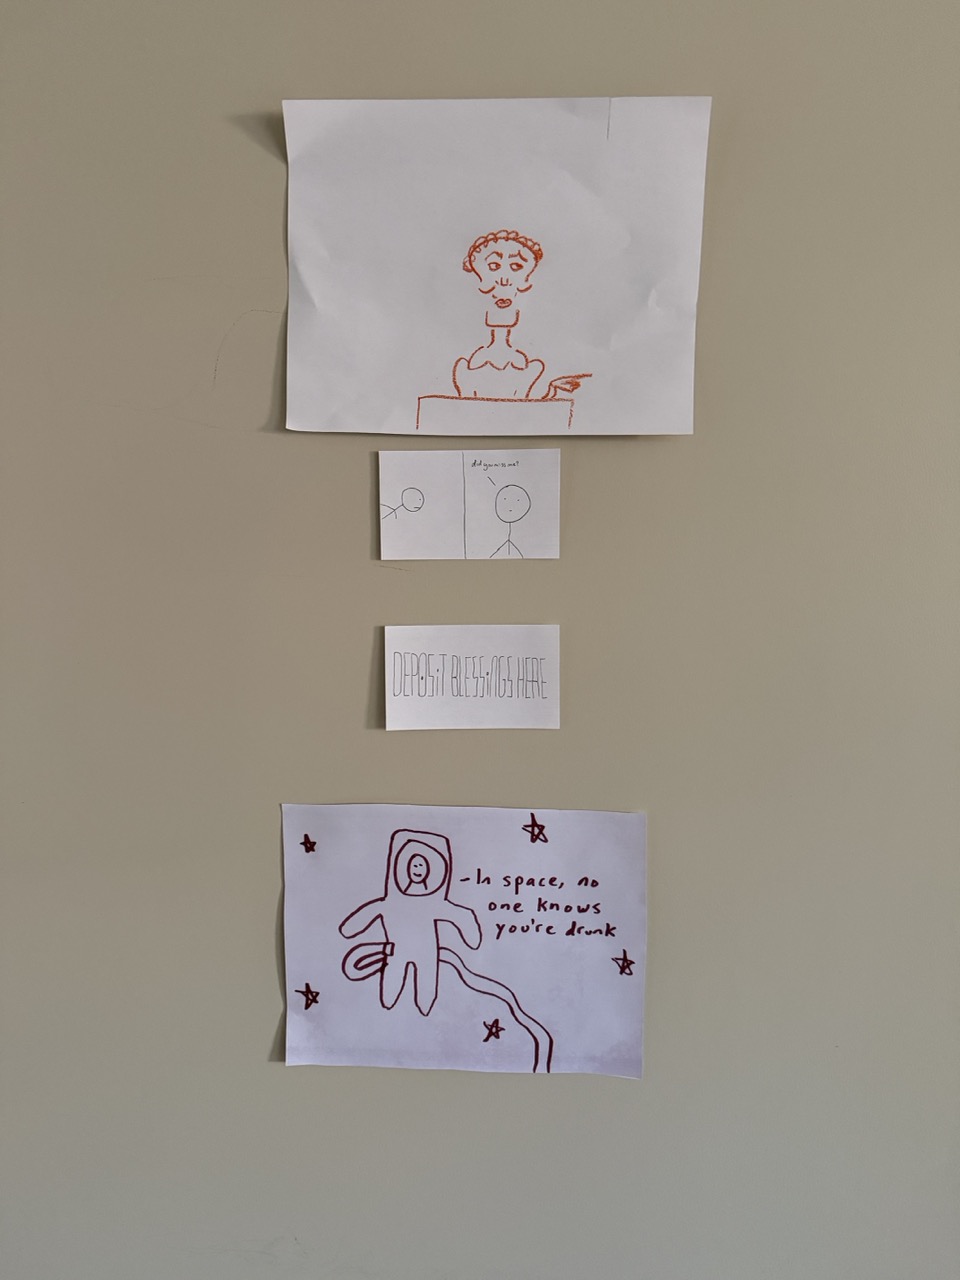 did you miss me?
DEPOSiT BLESSiNGS HERE
-In space, no
one knows
you're drunk